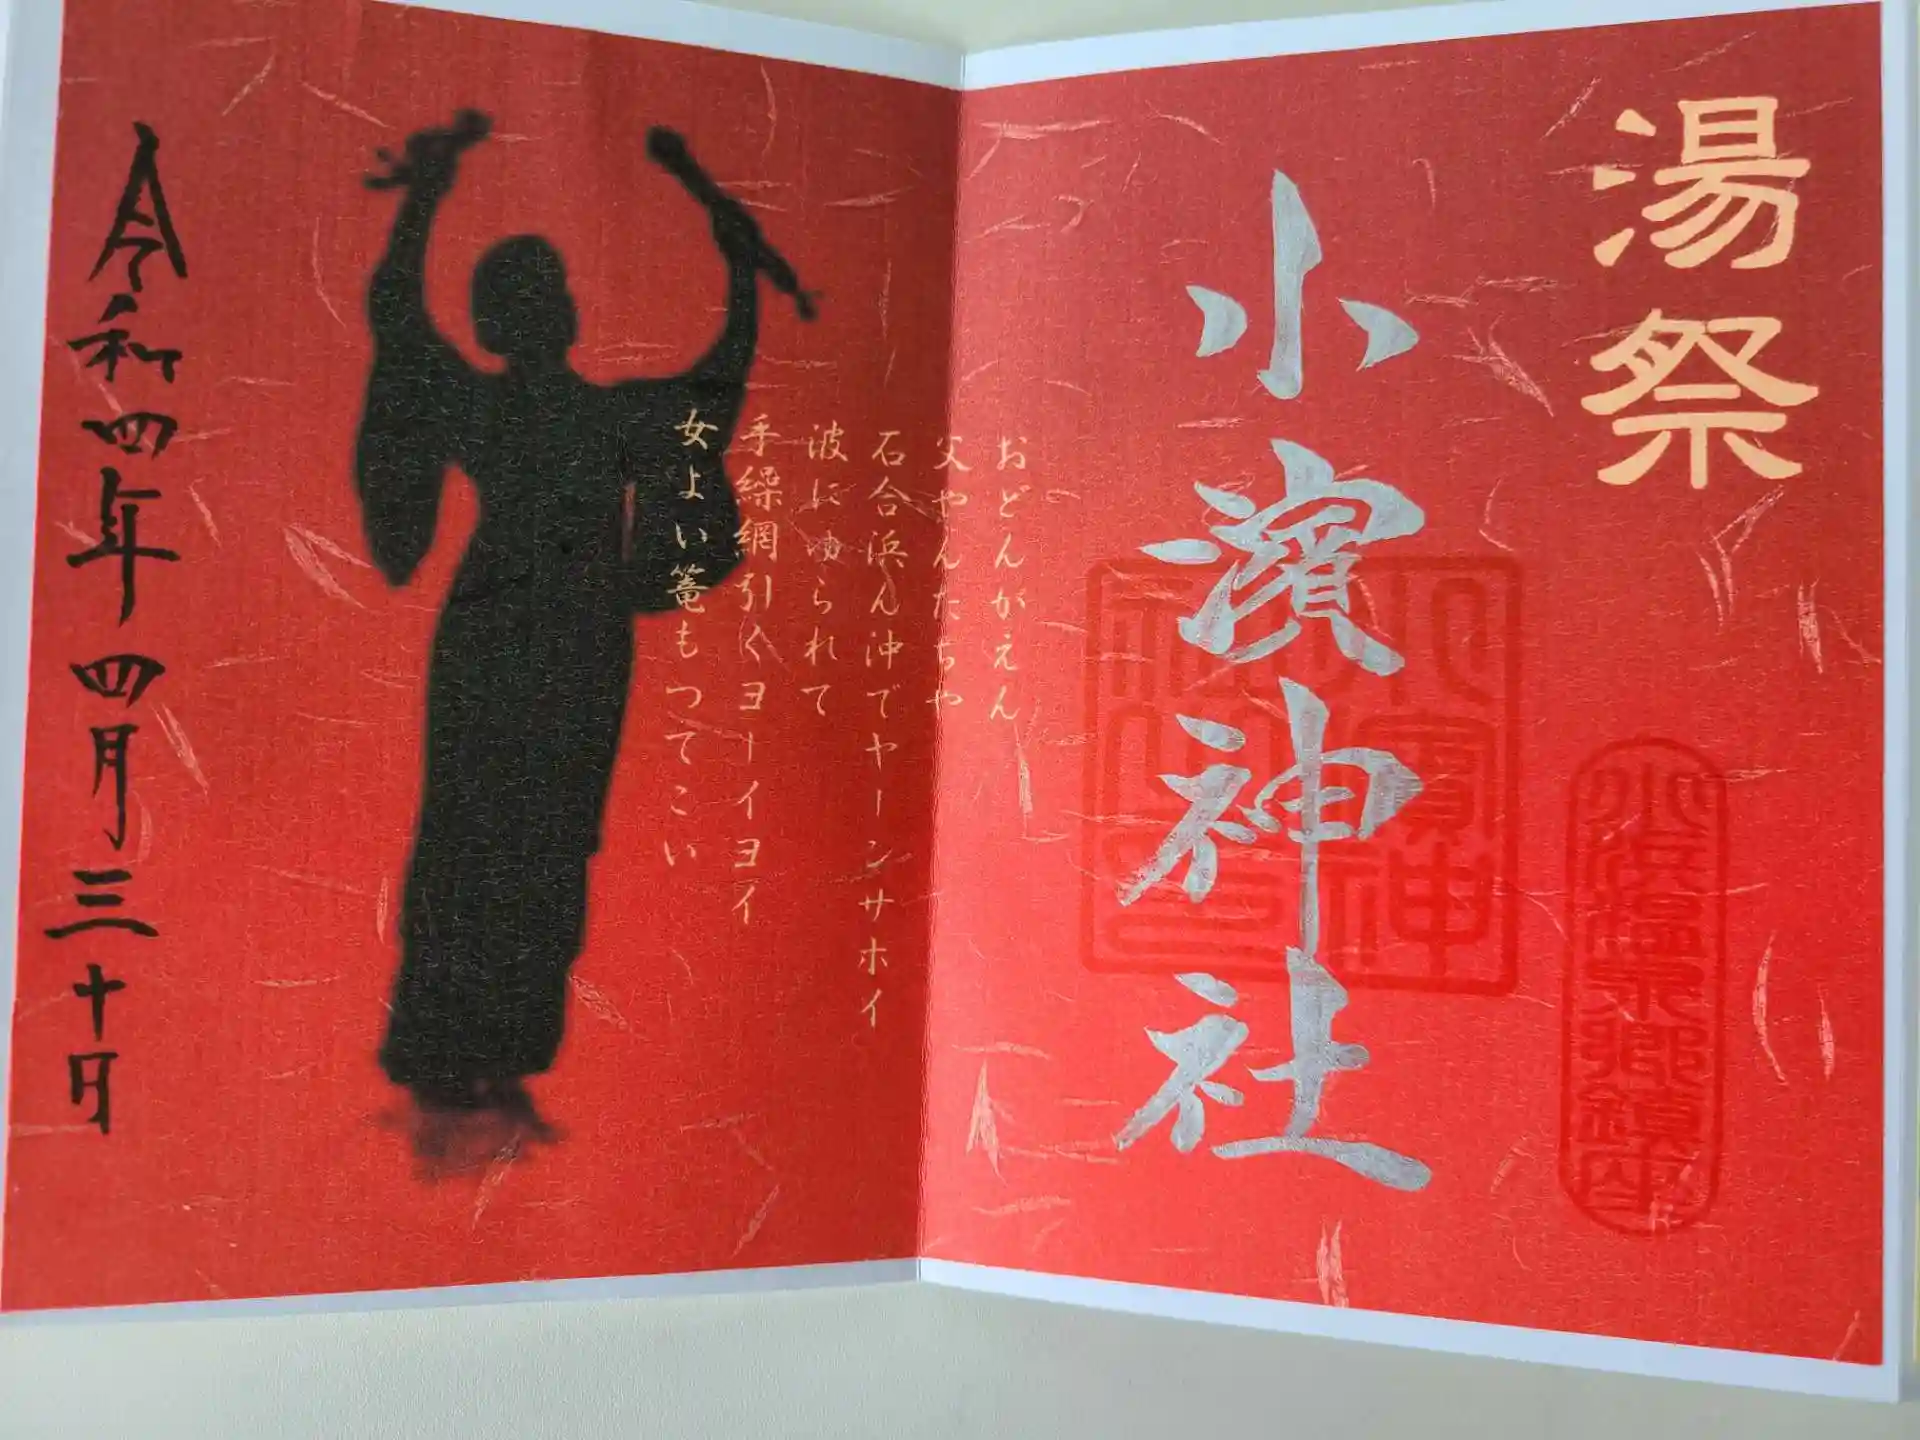 湯祭
小濱神社
小濱神社
小浜温泉郷鎮座
おどんがえん
父やんたちや
石合浜ん沖でヤーンサホイ
波にゆられて
手繰網引くヨーイヨイ
女よい篭もつてこい
令和四年四月三十日